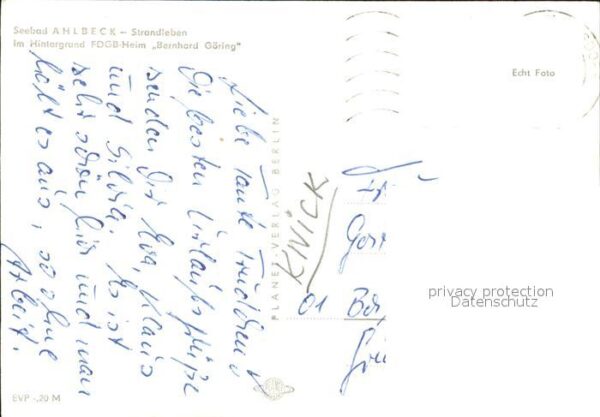 Seebad AHLBECK – Strandleben
im Hintergrund FDGB-Heim „Bernhard Göring"
Echt Foto
Liebe Tante Trudchen
Die besten Urlaubsgrüße
senden Dir Eva, Klaus
und Silvia. Es ist
sehr schön hier und man
hält es aus, so ohne
Arbeit.
PLANET-VERLAG BERLIN
KIVICK
01
privacy protection
Datenschutz
EVP -,20 M